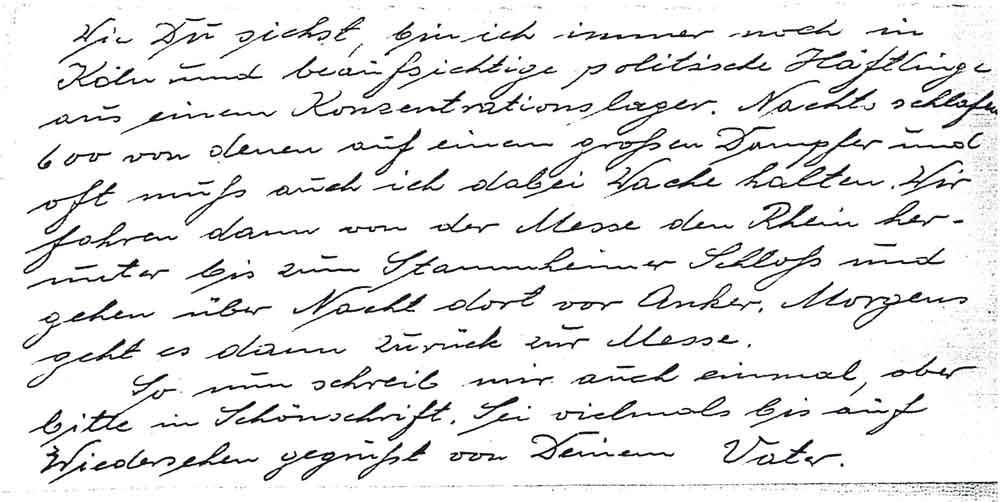 Wie Du siehst, bin ich immer noch in
Köln und beaufsichtige politische Häftlinge
aus einem Konzentrationslager. Nachts schlafen
600 von denen auf einem großen Dampfer und
oft muß auch ich dabei Wache halten. Wir
fahren dann von der Messe den Rhein her-
unter bis zum Stammheimer Schloß und
gehen über Nacht dort vor Anker. Morgens
geht es dann zurück zur Messe.
So nun schreib mir auch einmal, aber
bitte in Schönschrift. Sei vielmals bis auf
Wiedersehen gegrüßt von Deinem Vater.